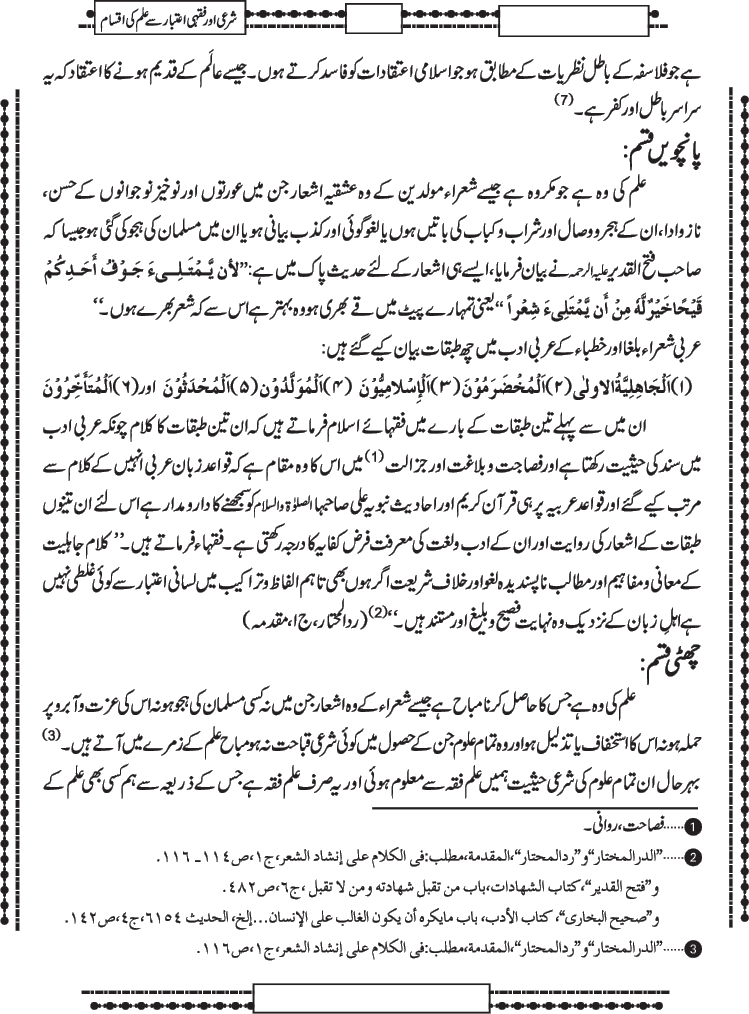 شرعی اور فقہی اعتبار سے علم کی اقسام
ہے جو فلاسفہ کے باطل نظریات کے مطابق ہو جو اسلامی اعتقادات کو فاسد کرتے ہوں۔ جیسے عالَم کے قدیم ہونے کا اعتقاد کہ یہ
سراسر باطل اور کفر ہے۔(7)
پانچویں قسم:
علم کی وہ ہے جو مکروہ ہے جیسے شعراء مولدین کے وہ عشقیہ اشعار جن میں عورتوں اور نوخیز نوجوانوں کے حسن،
ناز و ادا، ان کے ہجر و وصال اور شراب و کباب کی باتیں ہوں یا لغو گوئی اور کذب بیانی ہو یا ان میں مسلمان کی ہجو کی گئی ہو جیسا کہ
صاحب فتح القدیر علیہ الرحمہ نے بیان فرمایا، ایسے ہی اشعار کے لئے حدیث پاک میں ہے: ”لأن یَّمْتَلِیءَ جَوْفُ أَحَدِکُمْ
قَیْحًا خَیْرٌ لَّهُ مِنْ أَن یَّمْتَلِیءَ شِعْراً“ یعنی تمہارے پیٹ میں قے بھری ہو وہ بہتر ہے اس سے کہ شعر بھرے ہوں۔“
عربی شعراء بلغا اور خطباء کے عربی ادب میں چھ طبقات بیان کیے گئے ہیں:
(۱) اَلْجَاهِلِیَّةُ الاولٰی (۲) اَلْمُخْضَرَمُوْنَ (۳) اَلْإِسْلامِیُّوْنَ (۴) اَلْمُوَلَّدُوْن (۵) اَلْمُحْدَثُوْنَ اور (۶) اَلْمُتَأَخِّرُوْنَ
ان میں سے پہلے تین طبقات کے بارے میں فقہائے اسلام فرماتے ہیں کہ ان تین طبقات کا کلام چونکہ عربی ادب
میں سند کی حیثیت رکھتا ہے اور فصاحت و بلاغت اور جزالت(1) میں اس کا وہ مقام ہے کہ قواعد زبان عربی انہیں کے کلام سے
مرتب کیے گئے اور قواعد عربیہ پر ہی قرآن کریم اور احادیث نبویہ علی صاحبہا الصلوٰۃ والسلام کو سمجھنے کا دارومدار ہے اس لئے ان تینوں
طبقات کے اشعار کی روایت اور ان کے ادب و لغت کی معرفت فرض کفایہ کا درجہ رکھتی ہے۔ فقہاء فرماتے ہیں۔”کلام جاہلیت
کے معانی و مفاہیم اور مطالب ناپسندیدہ لغو اور خلاف شریعت اگر ہوں بھی تاہم الفاظ و تراکیب میں لسانی اعتبار سے کوئی غلطی نہیں
ہے اہلِ زبان کے نزدیک وہ نہایت فصیح و بلیغ اور مستند ہیں۔“(2) (ردالمحتار، ج۱، مقدمہ)
چھٹی قسم:
علم کی وہ ہے جس کا حاصل کرنا مباح ہے جیسے شعراء کے وہ اشعار جن میں نہ کسی مسلمان کی ہجو ہو نہ اس کی عزت و آبرو پر
حملہ ہو نہ اس کا استخفاف یا تذلیل ہو اور وہ تمام علوم جن کے حصول میں کوئی شرعی قباحت نہ ہو مباح علم کے زمرے میں آتے ہیں۔(3)
بہر حال ان تمام علوم کی شرعی حیثیت ہمیں علم فقہ سے معلوم ہوئی اور یہ صرف علم فقہ ہے جس کے ذریعہ سے ہم کسی بھی علم کے
1......فصاحت، روانی۔
2......”الدر المختار“ و ”رد المحتار“، المقدمة، مطلب: فی الکلام علی إنشاد الشعر، ج۱، ص۱۱۴ـ۱۱۶.
و ”فتح القدیر“، کتاب الشهادات، باب من تقبل شهادته ومن لا تقبل، ج۶، ص۴۸۲.
و ”صحیح البخاری“، کتاب الأدب، باب مایکره أن یکون الغالب علی الإنسان...إلخ، الحدیث ۶۱۵۴، ج۴، ص۱۴۲.
3......”الدر المختار“ و ”رد المحتار“، المقدمة، مطلب: فی الکلام علی إنشاد الشعر، ج۱، ص۱۱۶.